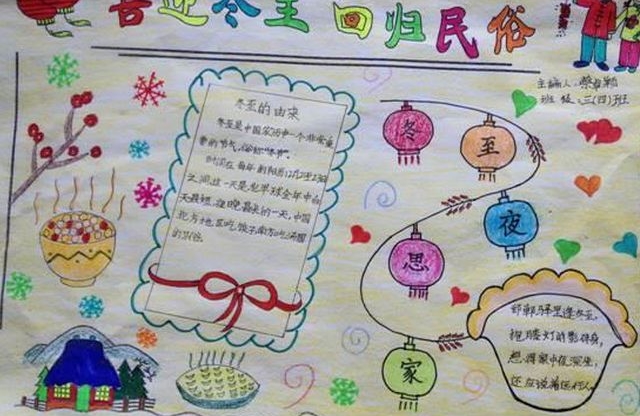 喜迎冬至 回归民俗
主编人:
班级:三(四)班
冬至的由来
冬至是中国农历中一个非常重
要的节气,俗称"冬节"。
时间在每年的阳历12月21至23日
之间,这一天是北半球全年中白
天最短、夜晚最长的一天,中国
北方地区吃饺子南方吃汤圆
的习俗。
冬
至
夜
思
家
邯郸驿里逢冬至,
抱膝灯前影伴身,
想得家中夜深坐,
还应说着远行人。